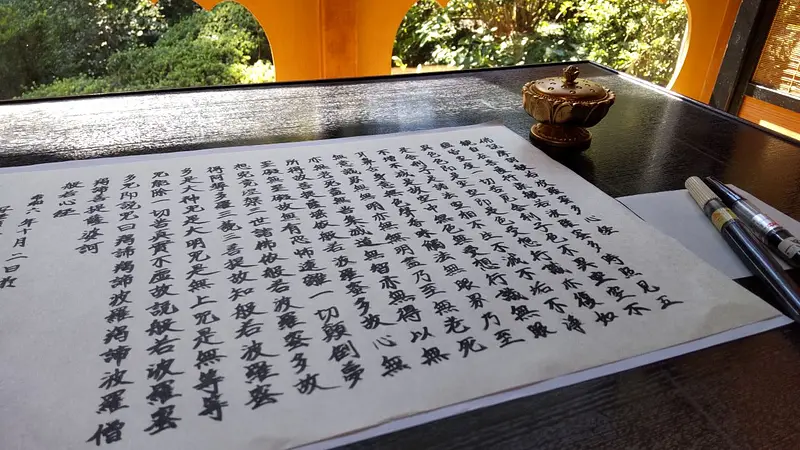 佛説摩訶般若波羅蜜多心経
観自在菩薩行深般若波羅蜜多時照見五
蘊皆空度一切苦厄舎利子色不異空空不
異色色即是空空即是色受想行識亦復如
是舎利子是諸法空相不生不滅不垢不浄
不増不減是故空中無色無受想行識無眼
耳鼻舌身意無色声香味触法無眼界乃至
無意識界無無明亦無無明尽乃至無老死
亦無老死尽無苦集滅道無智亦無得以無
所得故菩提薩埵依般若波羅蜜多故心無
罣礙無罣礙故無有恐怖遠離一切顛倒夢
想究竟涅槃三世諸佛依般若波羅蜜多故
得阿耨多羅三藐三菩提故知般若波羅蜜
多是大神呪是大明呪是無上呪是無等等
呪能除一切苦真実不虚故説般若波羅蜜
多呪即説呪曰羯諦羯諦波羅羯諦波羅僧
羯諦菩提薩婆訶
般若心経
令和六年十月二日